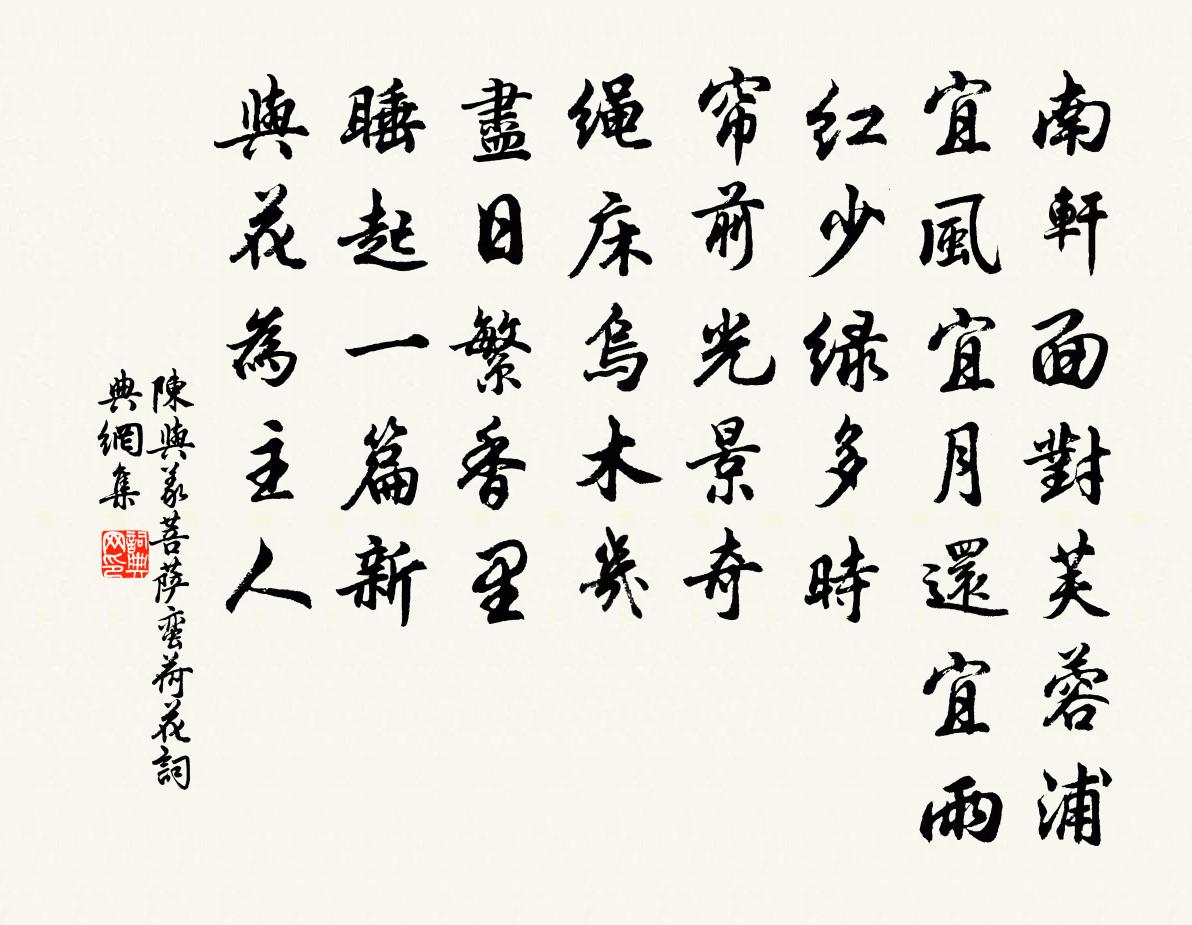 南軒面對芙蓉浦
宜風宜月還宜雨
红少绿多時
帘前光景奇
绳床烏木幾
盡日繁香里
睡起一篇新
與花為主人
陳與義菩萨蛮荷花詞
典網集
詞典网印